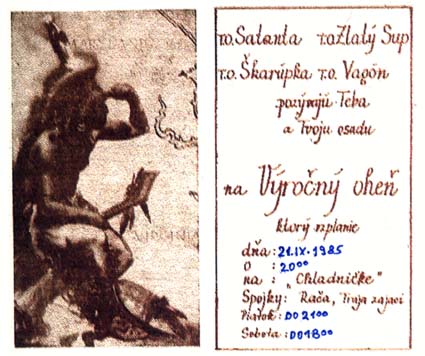 T.O. Satanta T.O. Zlatý Sup
T.O. Škarúpka T.O. Vagón
pozývajú Teba
a Tvoju osadu
na Výročný oheň
ktorý vzplanie
dňa : 21.IX.1985
o : 20⁰⁰
na : „Chladničke"
Spojky: Rača, Traja zajaci
Piatok : DO 21⁰⁰
Sobota : DO 18⁰⁰